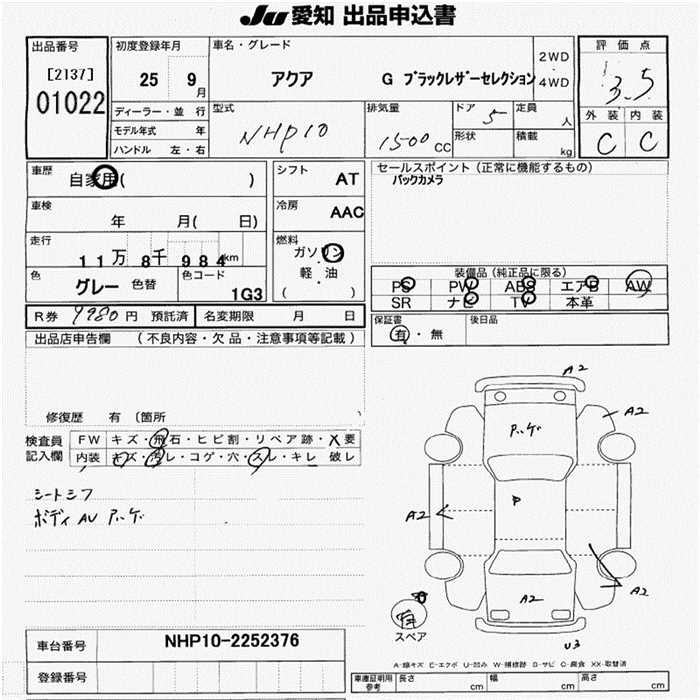 JU 愛知 出品申込書
出品番号
[2137]
01022
初度登録年月
25 9月
車名・グレード
アクア G ブラックレザーセレクション
2WD
4WD
評価点
3.5
外装 内装
C C
ディーラー・並行
モデル年式 年
ハンドル 左・右
型式
NHP10
排気量
1500 CC
ドア
5
定員
人
形状
積載
kg
車歴
自家用( )
車検
年 月( 日)
走行
11万 8千 984km
色
グレー 色替
色コード
1G3
シフト
AT
冷房
AAC
燃料
ガソリン
軽・油
( )
セールスポイント (正常に機能するもの)
バックカメラ
装備品 (純正品に限る)
PS PW ABS エアB AW
SR ナビ TV 本革
R券 9280円 預託済 名変期限 月 日
保証書
有・無
後日品
出品店申告欄 (不良内容・欠品・注意事項等記載)
修復歴 有 〔箇所
検査員
記入欄
FW キズ・飛石・ヒビ割・リペア跡・X要
内装 キズ・汚レ・コゲ・穴・スレ・キレ 破レ
シートシワ
ボディAV
A2
A2
A2
P
A2
A2
U3
有
スペア
A-線キズ E-エクボ U-凹み W-補修跡 S-サビ C-腐食 XX-取替済
車台番号 NHP10-2252376
登録番号
車庫証明用
参考
長さ cm 幅 cm 高さ cm